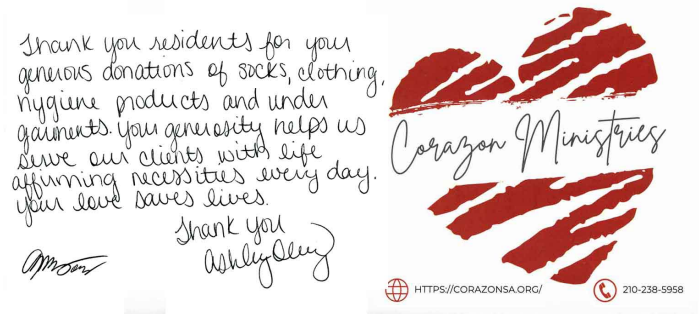 Thank you residents for your
generous donations of socks, clothing,
hygiene products and under
garments. Your generosity helps us
serve our clients with life
affirming necessities every day.
your love saves lives.
Thank you
Ashley
Corazon Ministries
HTTPS://CORAZONSA.ORG/
210-238-5958